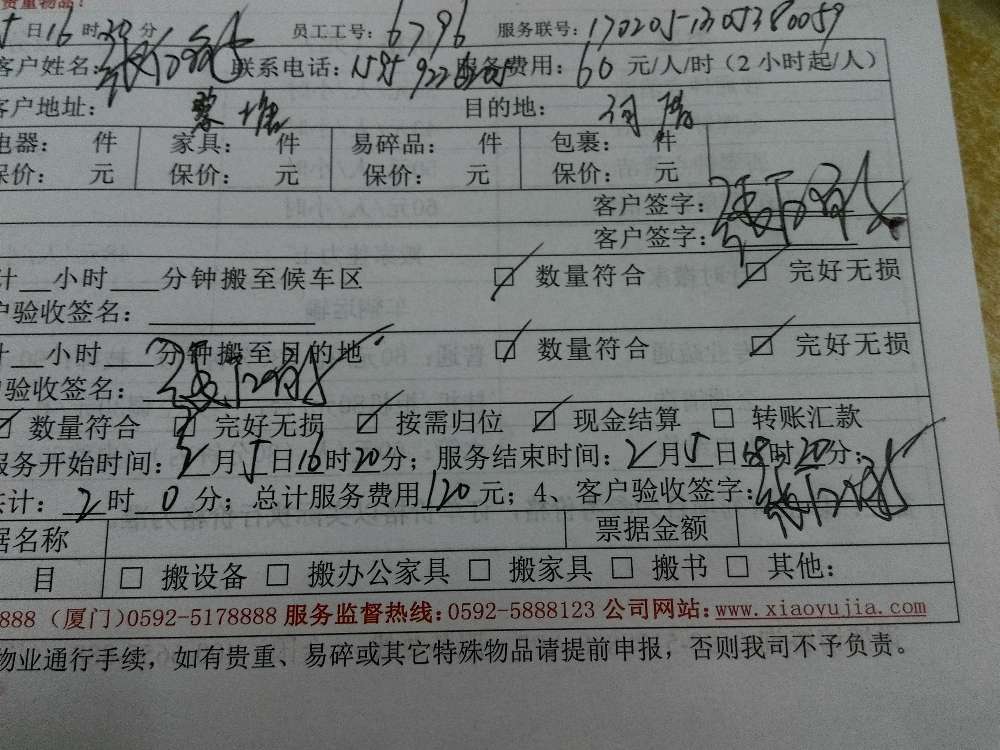 贵重物品！
5日16时20分 员工工号：6796 服务联号：1702051305380059
客户姓名： 联系电话：159 922 服务费用：60元/人/时（2小时起/人）
客户地址： 目的地：
电器： 件 家具： 件 易碎品： 件 包裹： 件
保价： 元 保价： 元 保价： 元 保价： 元
客户签字：
客户签字：
计__小时____分钟搬至候车区 ☑ 数量符合 ☑ 完好无损
户验收签名：
计__小时____分钟搬至目的地 ☑ 数量符合 ☑ 完好无损
户验收签名：
☑ 数量符合 ☑ 完好无损 ☑ 按需归位 ☑ 现金结算 □ 转账汇款
服务开始时间：2月5日16时20分；服务结束时间：2月5日18时20分；
共计：2时0分；总计服务费用120元；4、客户验收签字：
据名称 票据金额
目 □ 搬设备 □ 搬办公家具 □ 搬家具 □ 搬书 □ 其他：
888（厦门）0592-5178888 服务监督热线：0592-5888123 公司网站：www.xiaoyujia.com
物业通行手续，如有贵重、易碎或其它特殊物品请提前申报，否则我司不予负责。